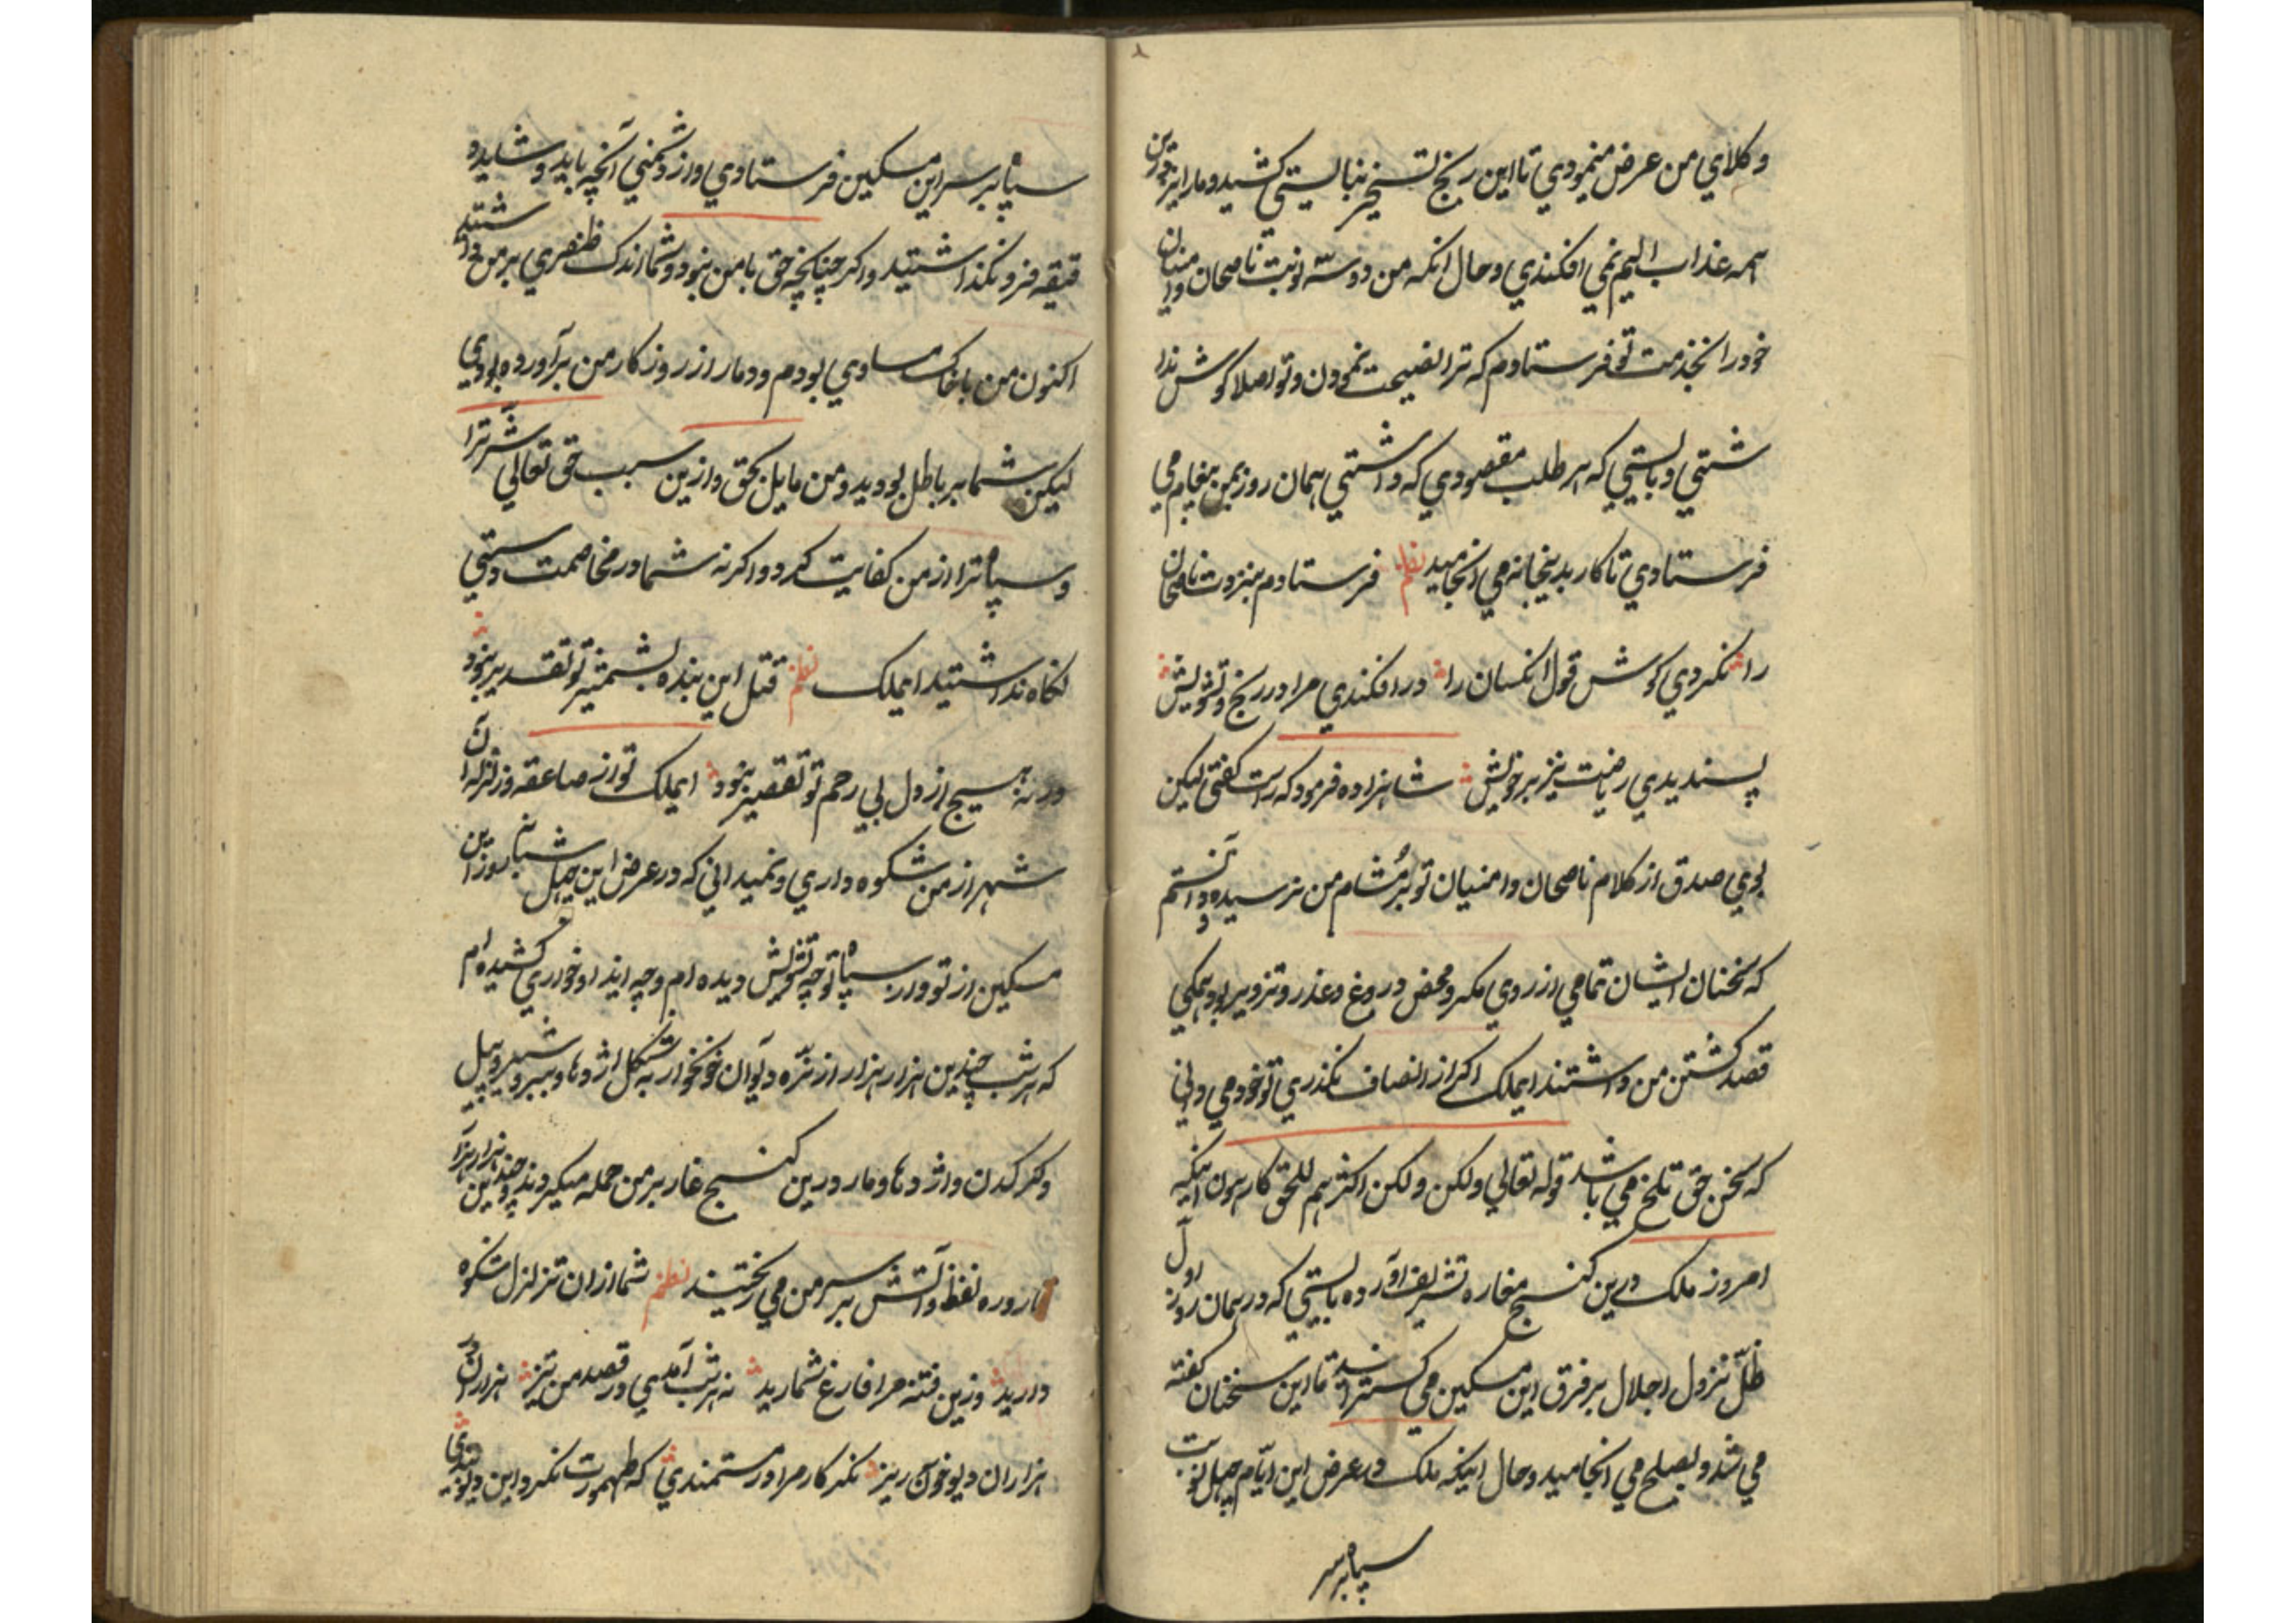 وکلای من عرض مینمودی تا این رنج تسخیر نبایستی کشید و مارا نیز
همه عذاب الیم نمی افکندی و حال انکه من دو سه نوبت ناصحان و امنیان
خود را بخدمت تو فرستادم که ترا نصیحت نمودن و تو اصلا کوش ندا
شتی و بایستی که هر طلب مقصودی که داشتی همان روز بمن پیغام می
فرستادی تا کار بدینجا نمی انجامید نظم فرستادم بنزدت ناصحان
را نکردی کوش قول انکسان را در افکندی مرا در رنج و تشویش
پسندیدی ریاضت نیز بر خویش شاهزاده فرمود که راست کفتی لیکن
بوی صدق از کلام ناصحان و امنیان تو بر مشام من نرسیده و دانستم
که سخنان ایشان تمامی از روی مکر و محض دروغ و غدر و تزویر بود همکی
قصد کشتن من داشتند ایملک اکر از انصاف نکذری تو خود می دانی
که سخن حق تلخ می باشد قوله تعالی ولکن ولکن اکثرهم للحق کارهون اینکه
امروز ملک درین کنج مغاره تشریف آورده بایستی که در همان روز اول
ظل نزول اجلال بر فرق این مسکین می کسترانید تا این سخنان کفته
می شد و بصلح می انجامید و حال اینکه ملک در عرض این ایام چهل نوبت
سپاه بر سر
سپاه بر سر این مسکین فرستادی و از دشمنی آنچه باید و شاید د
قیقه فرو نکذاشتید و اکر چنانچه حق با من نبود و شما اندک ظفری بر من داشتید
اکنون من با خاک مساوی بودم و دمار از روزکار من برآورده بودی
لیکن شما بر باطل بودید و من مایل بحق و ازین سبب حق تعالی شر ترا
و سپاه ترا از من کفایت کرد و اکر نه شما در مخاصمت و دستی
نکاه نداشتید ایملک نظم قتل این بنده بشمشیر تو تقدیر نبود
ورنه هیچ از دل بی رحم تو تقصیر نبود ایملک تو از صاعقه و زلزله آن
شهر از من شکوه داری و نمیدانی که در عرض این چهل شبانه روز این
مسکین از تو و از سپاه تو چه تشویش دیده ام و چه ایذا و خواری کشیده ام
که هر شب چندین هزار هزار از نره دیوان خونخوار به شکل اژدها و ببر و شیر و پیل
و کرکدن و اژدها و مار درین کنج غار بر من حمله میکردند و چندین هزار هزار
قاروره نفظ و آتش بر سر من می ریختید نظم شما از ان تزلزل شکوه
دارید وزین فتنه مرا فارغ شمارید نه هر شب آمدی در قصد من تیز هزاران در
هزاران دیو خون ریز نکر کار مرا در مستمندی که طهمورث نکرد این دیو بندی